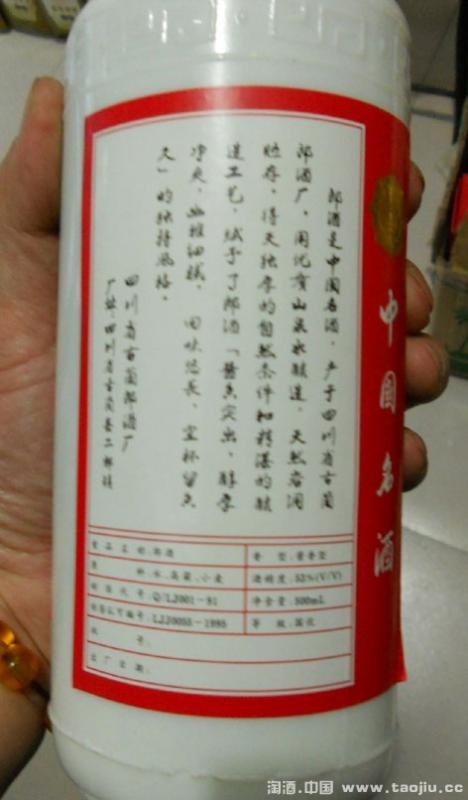 郎酒是中国名酒，产于四川省古蔺
郎酒厂，用优质山泉水酿造，天然岩洞
贮存，得天独厚的自然条件和精湛的酿
造工艺，赋予了郎酒「酱香突出，醇厚
净爽，幽雅细腻，回味悠长，空杯留香
久」的独特风格。
四川省古蔺郎酒厂
厂址：四川省古蔺县二郎镇
中国名酒
食品名称：郎酒
香型：酱香型
原料：水、高粱、小麦
酒精度：53%(V/V)
标准代号：Q/LJ001-91
净含量：500mL
标签认可编号：LJJ0055-1995
等级：国优
批号：
出厂日期：
淘酒.中国 www.taojiu.cc